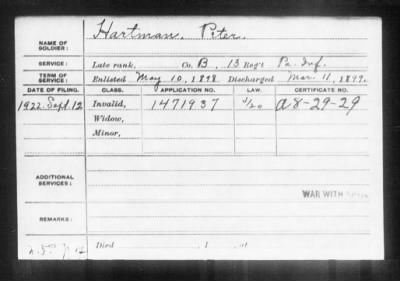 NAME OF SOLDIER: Hartman, Peter.
SERVICE: Late rank, Co. B, 13 Reg't Pa. Inf.
TERM OF SERVICE: Enlisted May 10, 1898 Discharged Mar. 11, 1899.
DATE OF FILING. CLASS. APPLICATION NO. LAW. CERTIFICATE NO.
1922 Sept. 12 Invalid, 1471937 A8-29-29
Widow,
Minor,
ADDITIONAL SERVICES:
WAR WITH
REMARKS:
Died , 1 , at